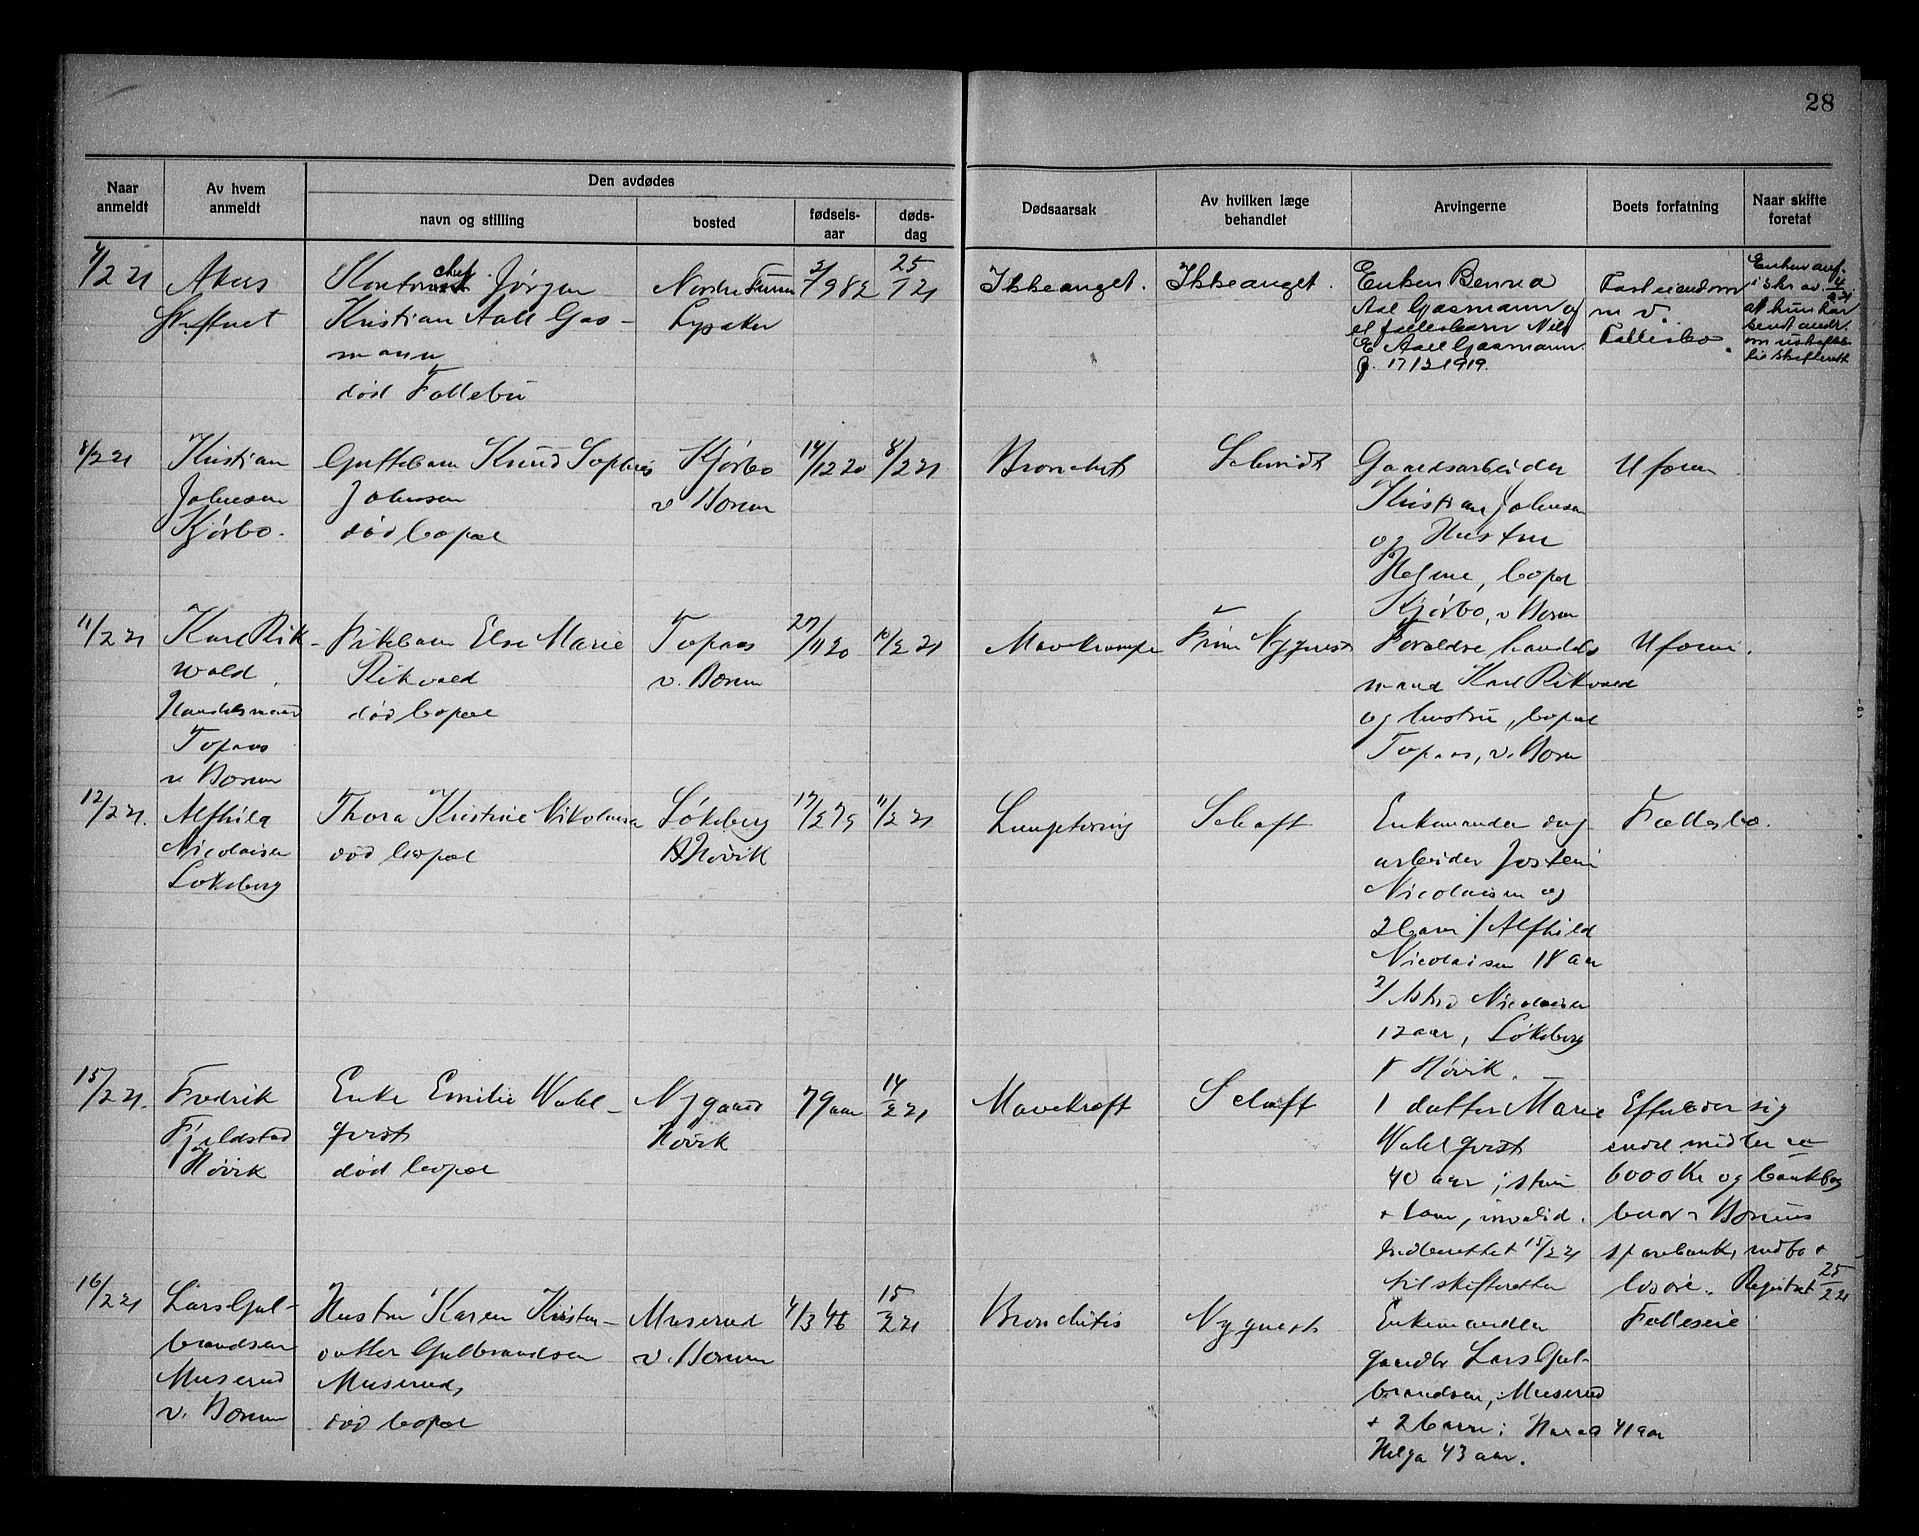 28
Naar anmeldt
Av hvem anmeldt
Den avdødes
navn og stilling
bosted
fødsels-aar
døds-dag
Dødsaarsak
Av hvilken læge behandlet
Arvingerne
Boets forfatning
Naar skifte foretat
4/2 21
Akers
Skifteret
Kontorchef Jørgen
Kristian Aall Gas-
mann
død Follebu
Nordre Furu
Lysaker
25/1 21
Ikke anget.
Ikke anget.
Enken Benna
Aall Gasmann og
et fællesbarn Nils
E. Aall Gasmann
f. 17/2 1919.
Fast eiendom
m v.
Fællesbo.
Enken anf.
i skr. av 4/2 21
at hun har
sendt andr.
om uskiftebo
til skifterett
8/2 21
Kristian
Johnsen
Kjørbo.
Guttebarn Knud Sophus
Johnsen
død bopæl
Kjørbo
v Bærum
14/12 20
8/2 21
Bronchit
Schmidt
Gaardsarbeider
Kristian Johnsen
og Hustru
Helene, bopæl
Kjørbo, v Bærum
Uform
11/2 21
Karl Rik-
wald,
Handelsmand
Topaas
v Bærum
Pikebarn Else Marie
Rikvald
død bopæl
Topaas
v. Bærum
27/11 20
10/2 21
Mavekrampe
Frim Nyquist
Forældre handels
mand Karl Rikvald
og hustru, bopæl
Topaas, v. Bærum
Uform.
12/2 21.
Alfhild
Nicolaisen
Løkeberg
Thora Kristine Nikolaisen
død bopæl
Løkeberg
Høvik
17/2 79
11/2 21
Lungetæring
Schaft
Enkemanden dag
arbeider Jostein
Nicolaisen og
2 barn 1/ Alfhild
Nicolaisen 18 aar
2/ Astrid Nicolaisen
12 aar, Løkeberg
pr Høvik.
Fællesbo.
15/2 21.
Fredrik
Fjeldstad
Høvik
Enke Emilie Wahl-
qvist
død bopæl
Nygaard
Høvik
79 aar
14/2 21
Mavekræft
Schaft
1 datter Marie
Wahlqvist
40 aar;
invalid.
Indberettet 15/2 21
til skifteretten
Efterlader sig
endel midler ca
6000 Kr og bankbog
beror i Bærums
sparebank, indbo +
løsøre. Registret 25/2 21
16/2 21
Lars Gul-
brandsen
Muserud
v. Bærum
Hustru Karen Kristen-
datter Gulbrandsen
Muserud,
død bopæl
Muserud
v. Bærum
4/3 46
15/2 21
Bronchitis
Nyquist
Enkemanden
gaardbr Lars Gul-
brandsen, Muserud
+ 2 barn: Harald 41 aar
Helga 43 aar.
Fælleseie